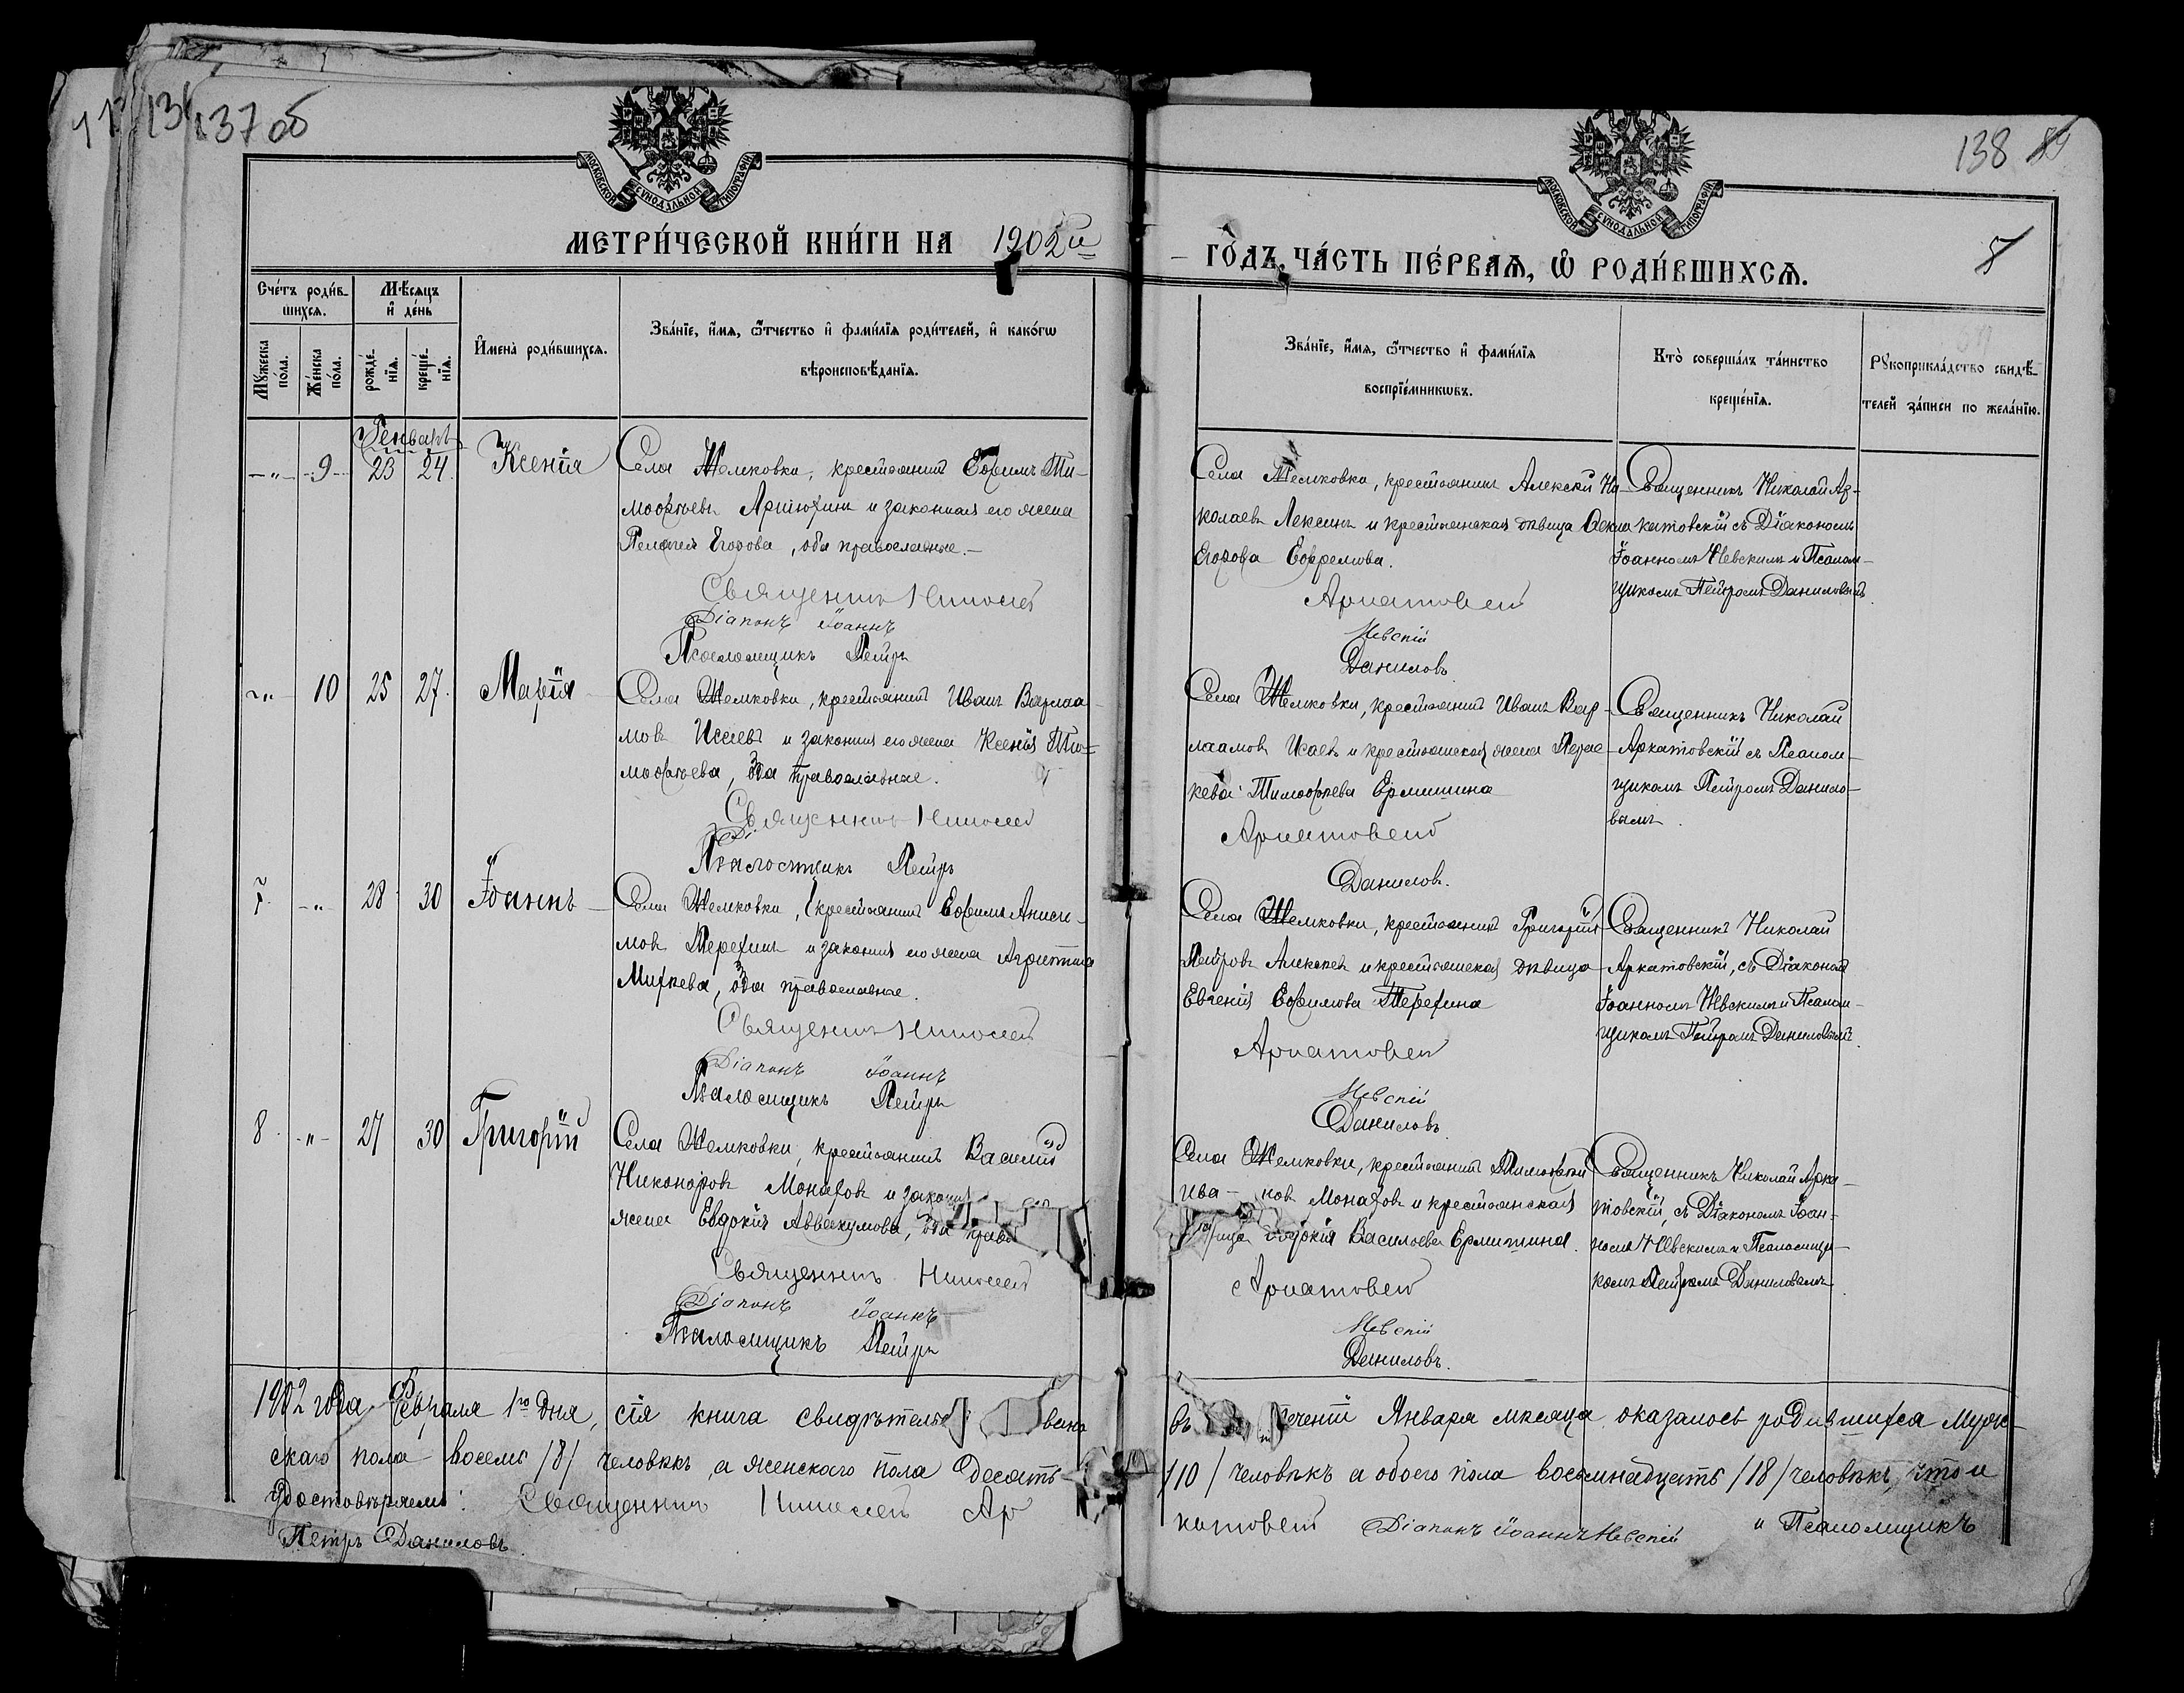 137 об
138
МОСКОВСКОЙ СѴНОДАЛЬНОЙ ТИПОГРАФІИ
МОСКОВСКОЙ СѴНОДАЛЬНОЙ ТИПОГРАФІИ
МЕТРИ́ЧЕСКОЙ КНИ́ГИ НА 1902й
ГО́ДЪ, ЧА́СТЬ ПЕ́РВАѦ, Ѡ҆ РОДИ́ВШИХСѦ.
Сче́тъ роди́в-
шихсѧ.
Мꙋ́жеска по́ла.
Же́нска по́ла.
Мѣ́сѧцъ и҆ де́нь
рожде́-
нїѧ.
креще́-
нїѧ.
И҆мена̀ роди́вшихсѧ.
Зва́нїе, и҆́мѧ, ѻ҆́тчество и҆ фами́лїѧ роди́телей, и҆ како́гѡ
вѣроисповѣ́данїѧ.
Зва́нїе, и҆́мѧ, ѻ҆́тчество и҆ фами́лїѧ
воспрїе́мникѡвъ.
Кто̀ соверша́лъ та́инство
креще́нїѧ.
Рꙋкоприкла́дство свидѣ́-
телей за́писи по жела́нїю.
Январь
-"- 9 23 24 Ксенія
Села Жемковки, крестьянинъ Ефимъ Ти-
мофѣевъ Арютинъ и законная его жена
Пелагея Егорова, оба православные.
Священникъ Николай
Діаконъ Іоаннъ
Псаломщикъ Петръ
Села Жемковки, крестьянинъ Алексѣй Ни-
колаевъ Лексинъ и крестьянская дѣвица Фекла
Егорова Ефремова.
Аркатовскій
Невскій
Даниловъ
Священникъ Николай Ар-
катовскій съ Діакономъ
Іоанномъ Невскимъ и Псалом-
щикомъ Петромъ Даниловымъ
-"- 10 25 27 Марія
Села Жемковки, крестьянинъ Иванъ Варлаа-
мовъ Исаевъ и законная его жена Ксенія Ти-
мофѣева, оба православные.
Священникъ Николай
Псаломщикъ Петръ
Села Жемковки, крестьянинъ Иванъ Вар-
лаамовъ Исаевъ и крестьянская жена Парас-
кева Тимофѣева Ермишина
Аркатовскій
Даниловъ.
Священникъ Николай
Аркатовскій съ Псалом-
щикомъ Петромъ Данило-
вымъ
7 -"- 28 30 Іоаннъ
Села Жемковки, крестьянинъ Ефимъ Аниси-
мовъ Терехинъ и законная его жена Агриппина
Михѣева, оба православные.
Священникъ Николай
Діаконъ Іоаннъ
Псаломщикъ Петръ
Села Жемковки, крестьянинъ Григорій
Петровъ Алексѣевъ и крестьянская дѣвица
Евгенія Ефимова Терехина
Аркатовскій
Невскій
Даниловъ
Священникъ Николай
Аркатовскій, съ Діакономъ
Іоанномъ Невскимъ и Псалом-
щикомъ Петромъ Даниловымъ.
8 -"- 27 30 Григорій
Села Жемковки, крестьянинъ Василій
Никоноровъ Монаховъ и законная его
жена Евдокія Аввакумова, оба правос
Священникъ Николай
Діаконъ Іоаннъ
Псаломщикъ Петръ
Села Жемковки, крестьянинъ Тимофей
Ива- новъ Монаховъ и крестьянская
Евдокія Васильева Ермишина.
Аркатовскій
Невскій
Даниловъ.
Священникъ Николай Арка-
товскій, съ Діакономъ Іоан-
номъ Невскимъ и Псаломщи-
комъ Петромъ Даниловымъ.
1902 года Февраля 1го дня, сія книга свидѣтельс вана въ теченіи Января мѣсяца оказалось родившихся муже-
скаго пола восемь /8/ человѣкъ, а женскаго пола десять /10/ человѣкъ а обоего пола восемнадцать /18/ человѣкъ, что и
удостовѣряемъ: Священникъ Николай Аркатовскій Діаконъ Іоаннъ Невскій и Псаломщикъ
Петръ Даниловъ.